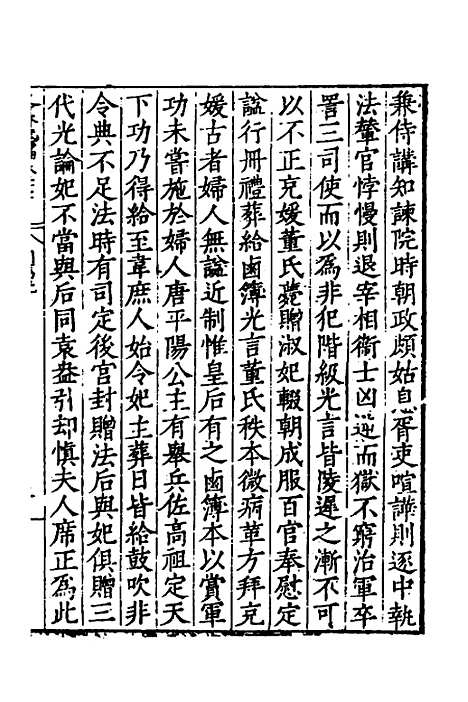 兼侍講知諫院時朝政頗姑息胥吏喧譁則逐中執
法輦官悖慢則退宰相衞士凶逆而獄不窮治軍卒
詈三司使而以爲非犯階級光言皆陵遲之漸不可
以不正充媛董氏薨贈淑妃輟朝成服百官奉慰定
諡行冊禮葬給鹵簿光言董氏秩本微病革方拜充
媛古者婦人無諡近制惟皇后有之鹵簿本以賞軍
功未嘗施於婦人唐平陽公主有舉兵佐高祖定天
下功乃得給至韋庶人始令妃主葬日皆給鼓吹非
令典不足法時有司定後宮封贈法后與妃俱贈三
代光論妃不當與后同袁盎引却慎夫人席正爲此